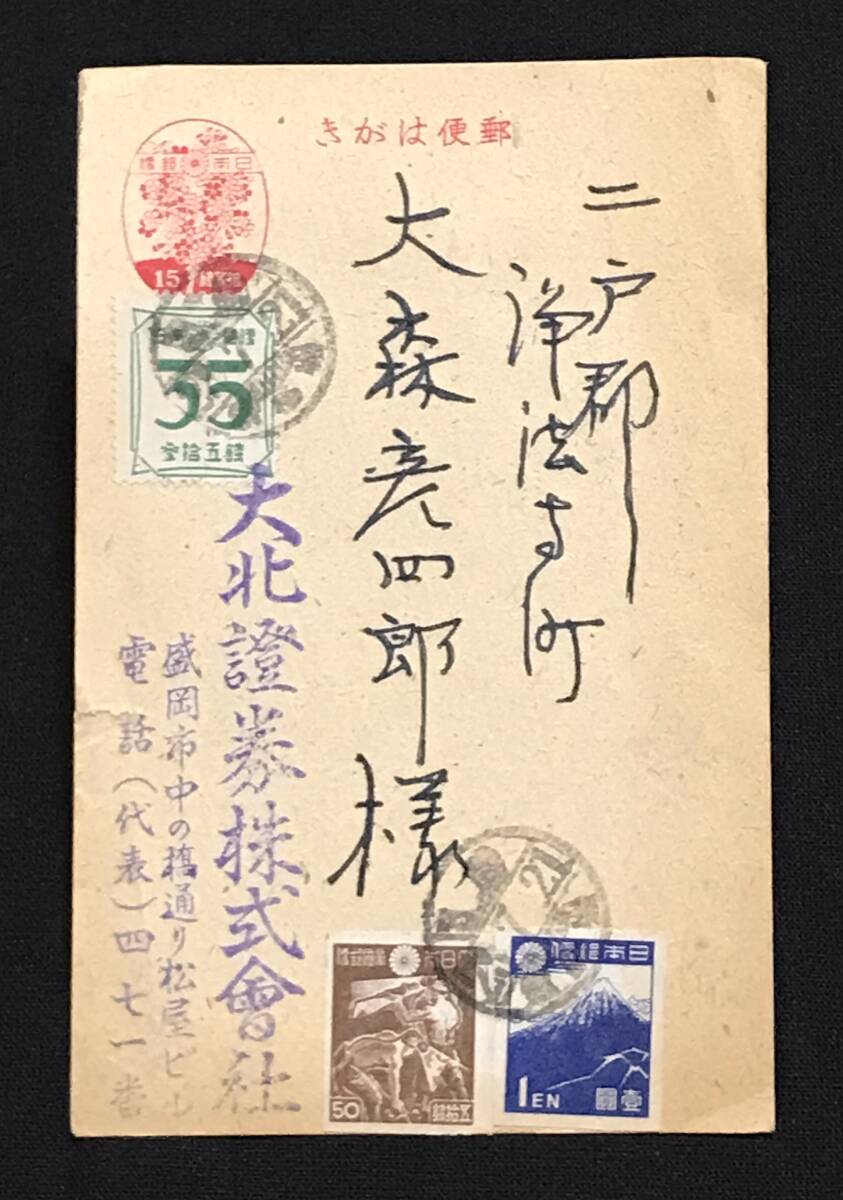 郵便はがき
日本郵便
15
二戸郡
浄法寺町
大森彦四郎様
35
参拾五銭
大北證券株式會社
盛岡市中の橋通り松屋ビル
電話(代表)四七一番
日本郵便
1EN
壹圓
50
五拾銭
21
21